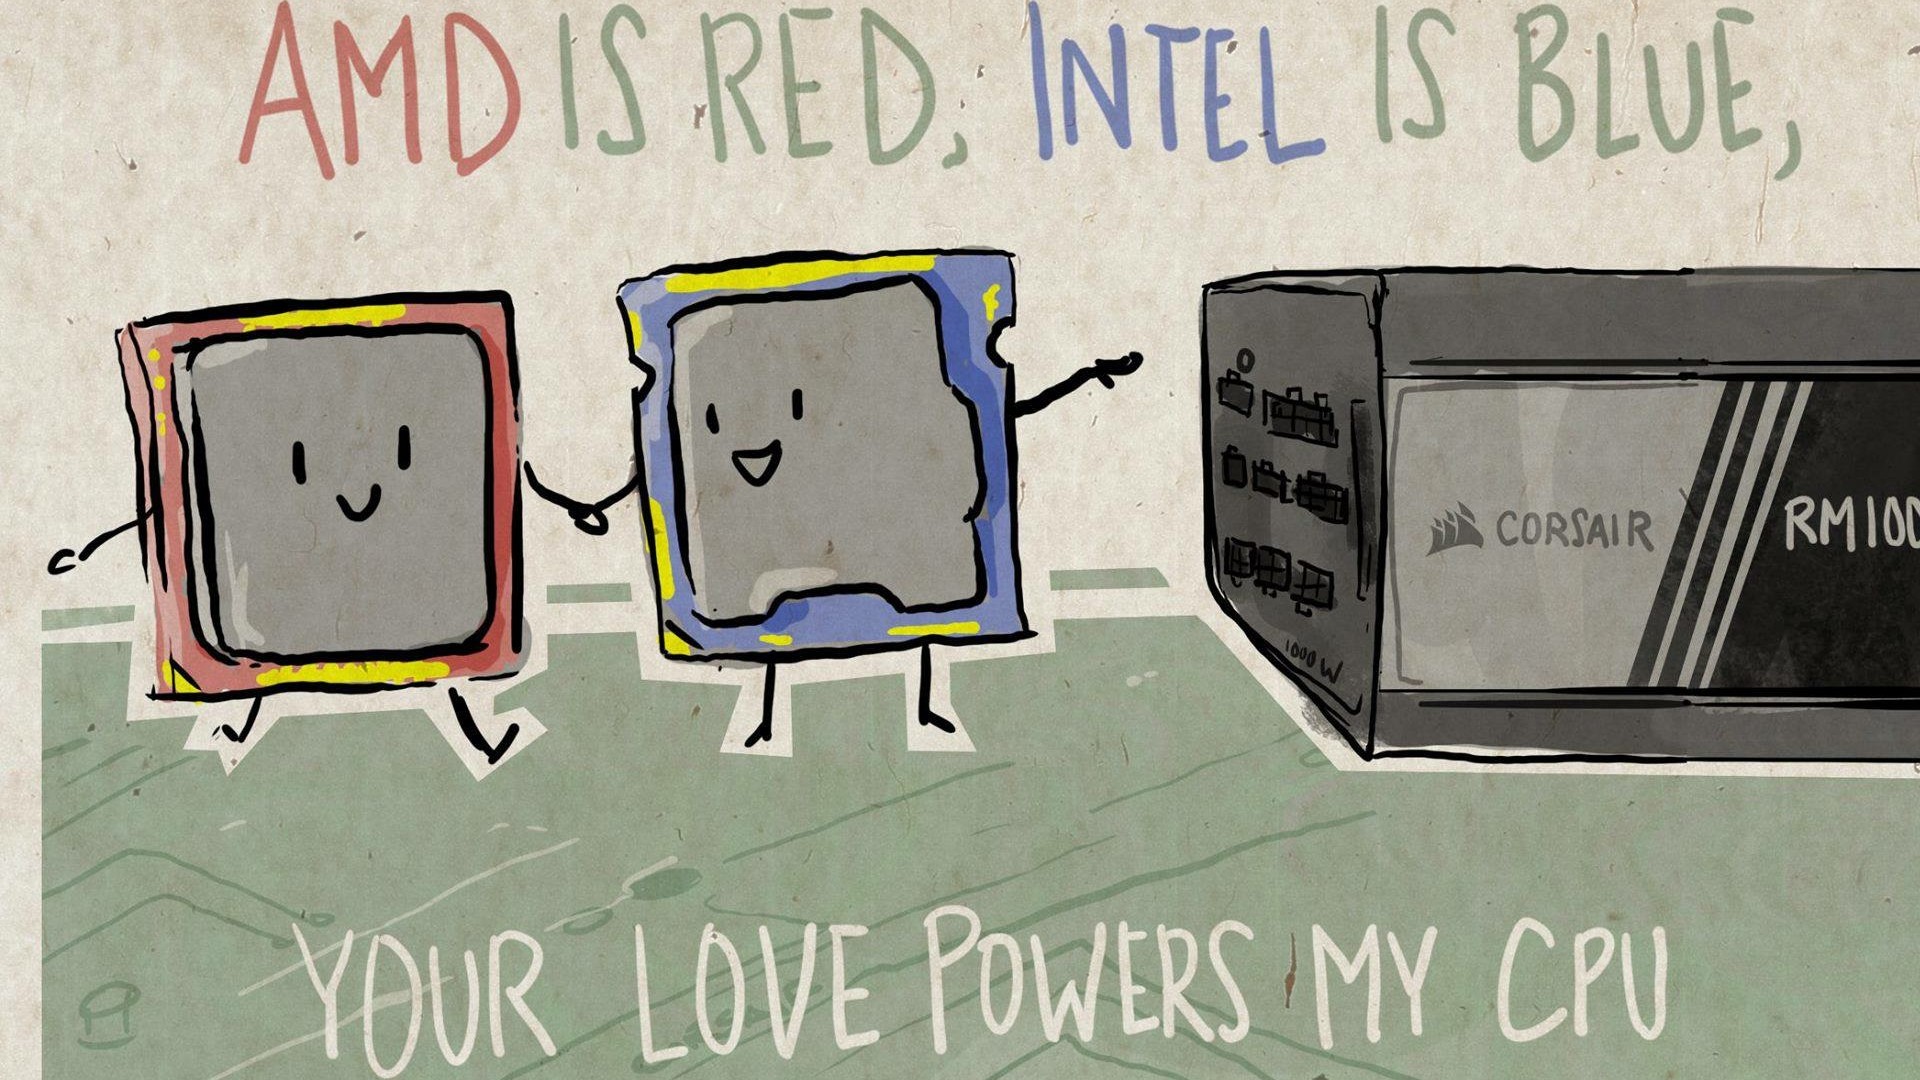 AMD IS RED, INTEL IS BLUE,
CORSAIR
RM100
1000W
YOUR LOVE POWERS MY CPU